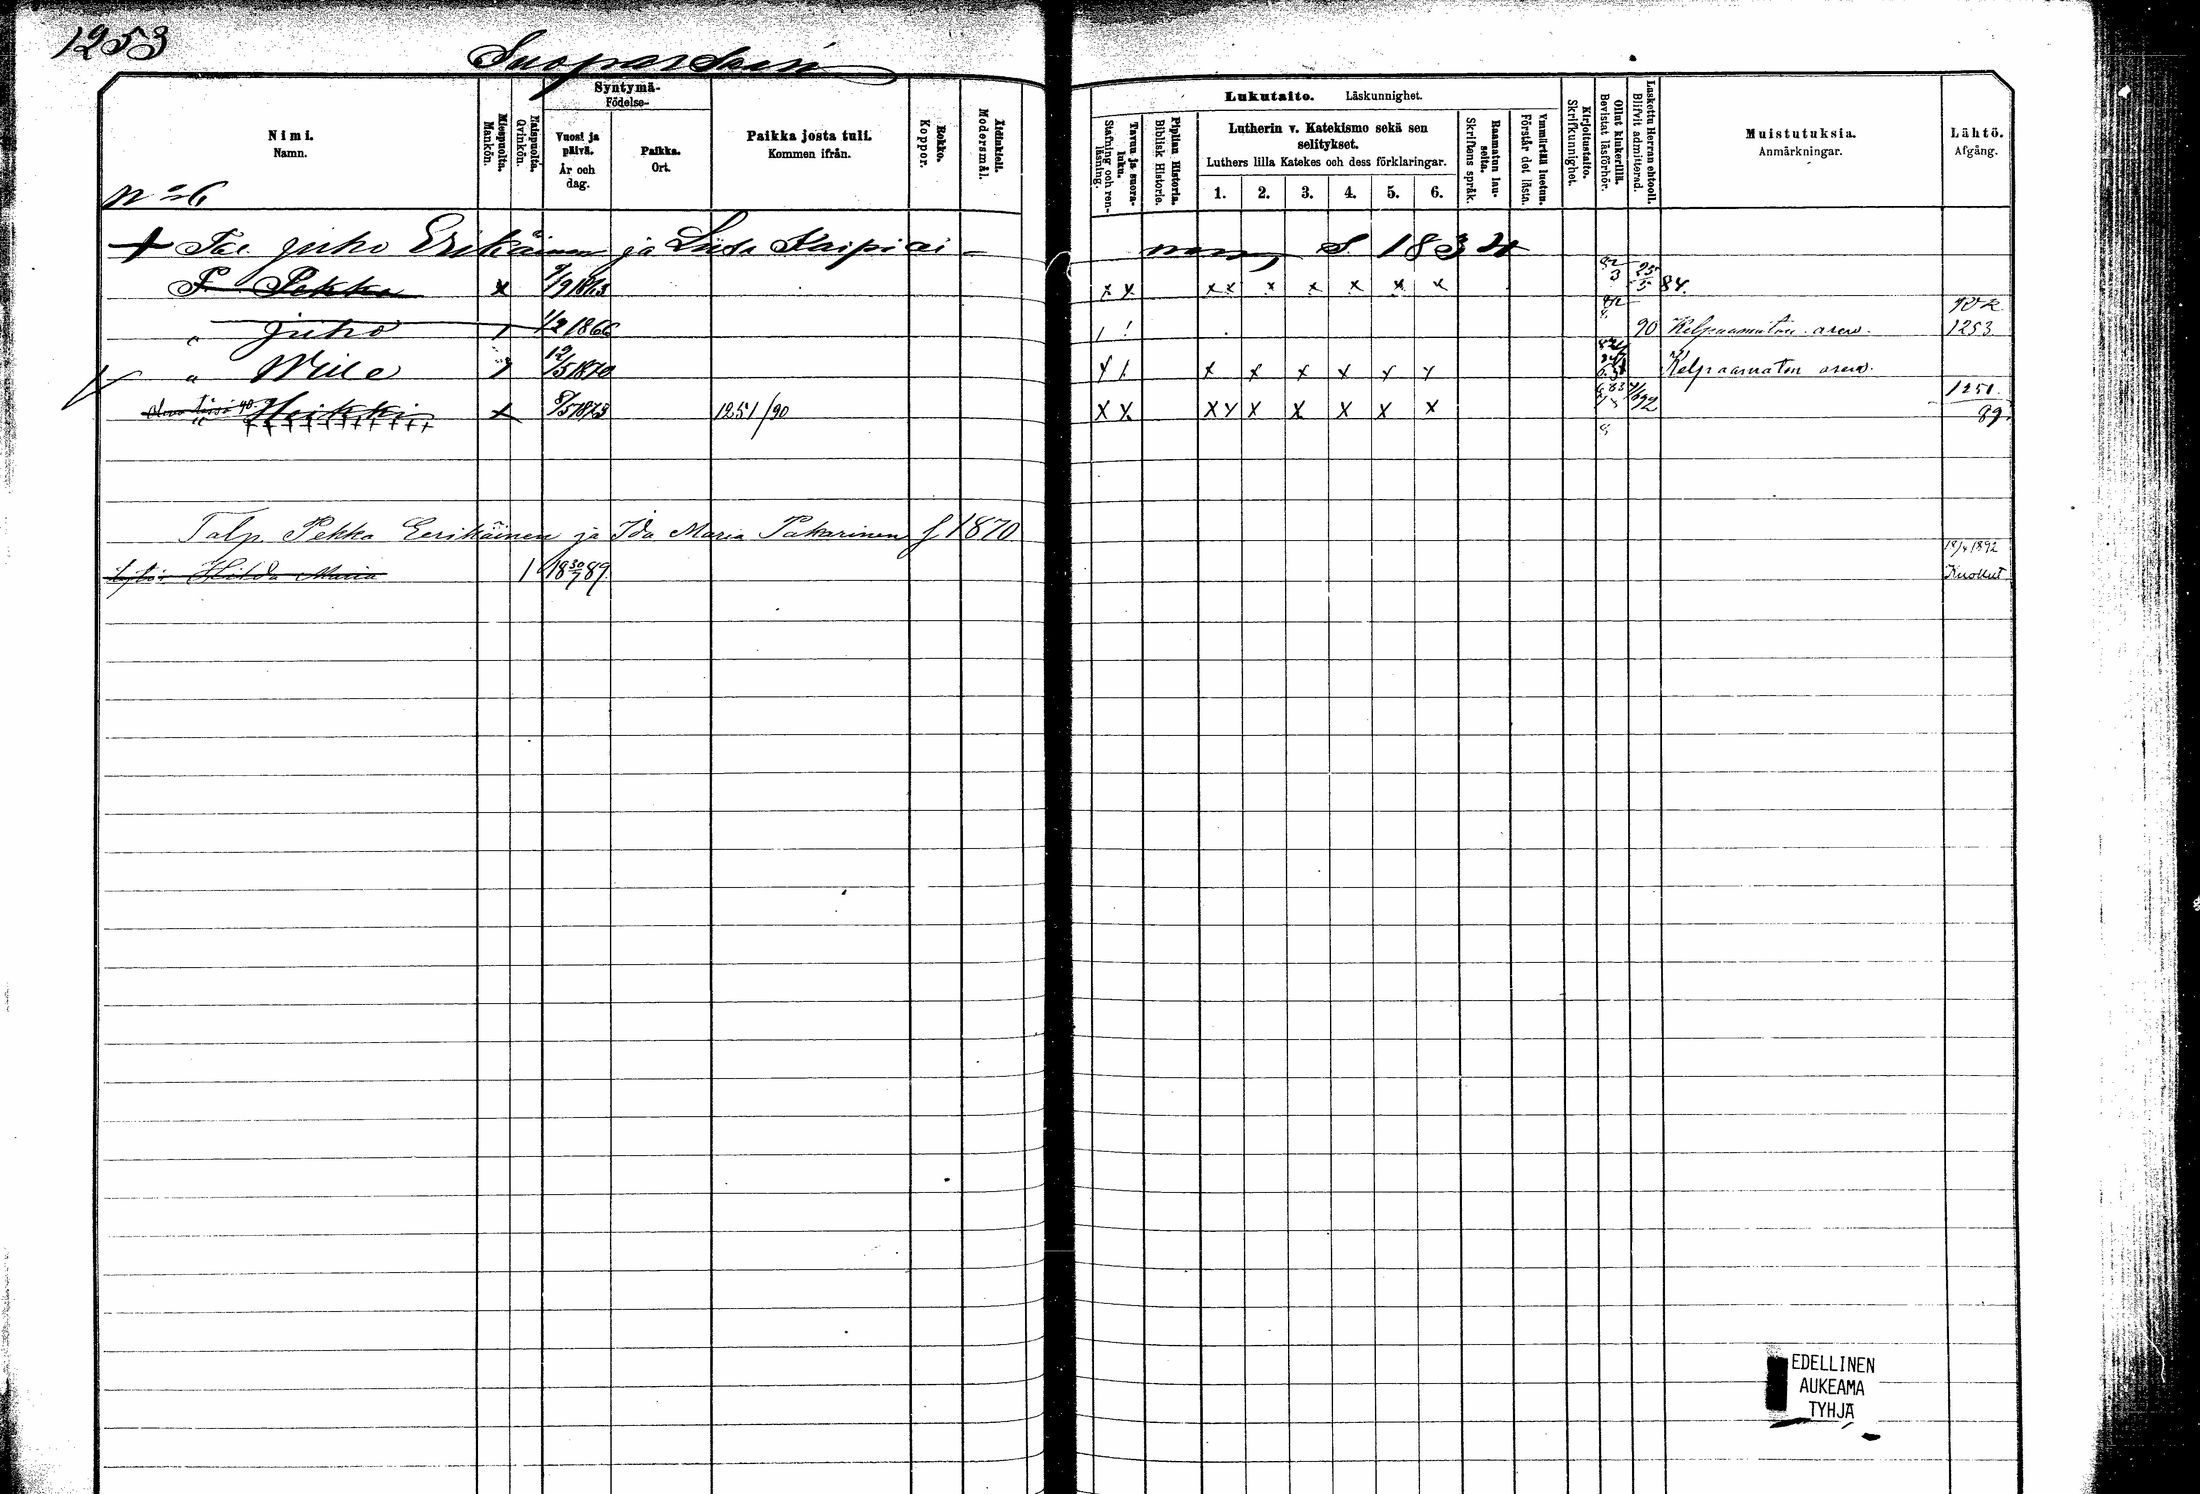 1253
Suopar
Syntymä-
Födelse-
Nimi.
Namn.
Miespuolia.
Mankön.
Naispuolia.
Qvinkön.
Vuosi ja
päivä.
År och
dag.
Paikka.
Ort.
Paikka josta tuli.
Kommen ifrån.
Rokko.
Koppor.
Äitinkieli.
Modersmål.
Lukutaito. Läskunnighet.
Tavuu ja suora-
luku.
Stafning och ren-
läsning.
Piplian Historia.
Biblisk Historie.
Lutherin v. Katekismo sekä sen
selitykset.
Luthers lilla Katekes och dess förklaringar.
1. 2. 3. 4. 5. 6.
Raamatun lau-
seita.
Skriftens språk.
Ymmärtää luetun.
Förstår det lästa.
Kirjoitustaito.
Skrifkunnighet.
Ollut kinkerillä.
Bevistat läsförhör.
Laskettu Herran ehtooll.
Blifvit admitterad.
Muistutuksia.
Anmärkningar.
Lähtö.
Afgång.
No 6
Tal. Juho Erikäinen ja Liisa Kaipiai-
nen, S. 1834
P. Pekka x 9/9 1863 x x x x x x x x x 3 25/5 84.
" Juho 1/2 1866 90 Kelpaamaton asew. 1253
" Wille 12/5 1870 x x x x x x Kelpaamaton asew.
" Heikki x 8/5 1873 1251/90 x x x x x x x x x 92 1251
89.
Talp. Pekka Eerikäinen ja Ida Maria Pakarinen f 1870
tytär Hilda Maria 1 18 30/7 89. 19/4 1892
Kuollut
EDELLINEN
AUKEAMA
TYHJÄ